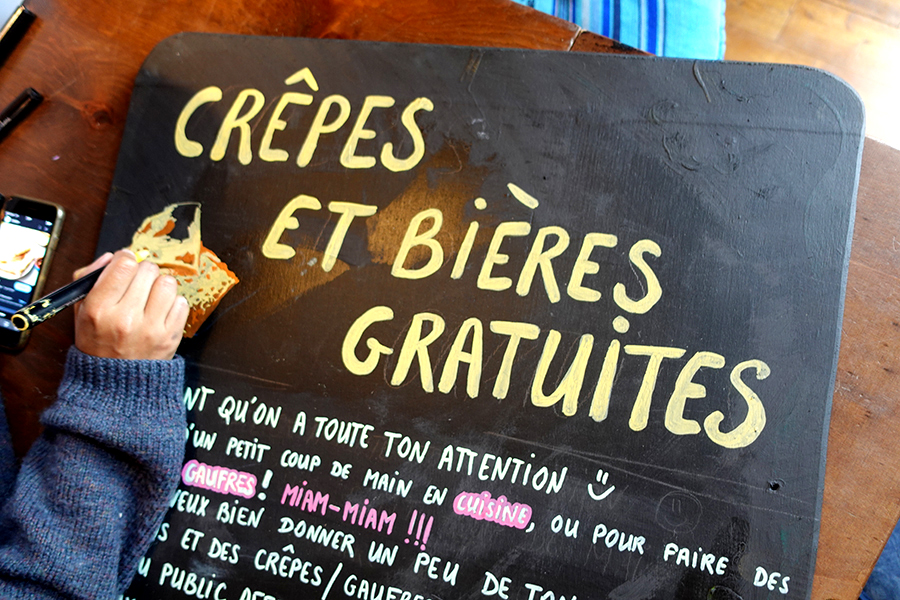 CRÊPES
ET BIÈRES
GRATUITES
NT QU'ON A TOUTE TON ATTENTION
UN PETIT COUP DE MAIN EN CUISINE, OU POUR FAIRE DES
GAUFRES! MIAM-MIAM !!!
VEUX BIEN DONNER UN PEU DE
S ET DES CRÊPES/GAUFRES
U PUBLIC